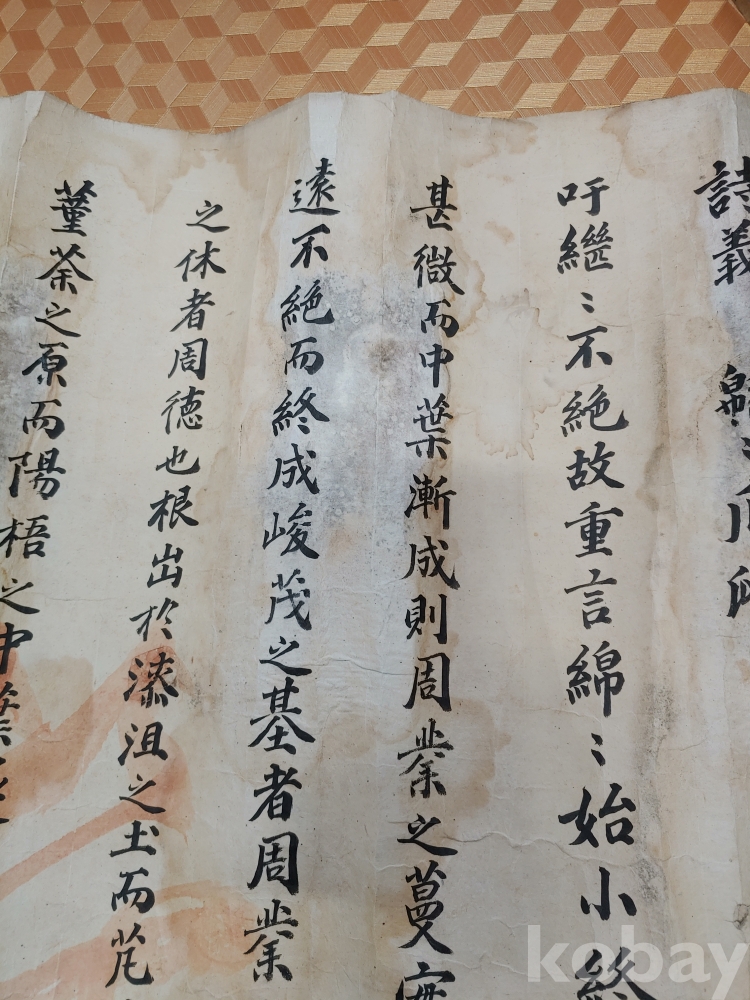 詩義
吁繼〻不絶故重言綿〻始小終
甚微而中葉漸成則周業之蔓
遠不絶而終成峻茂之基者周業
之休者周德也根出於漆沮之土而
菫荼之原而陽梧之中葉
kobay